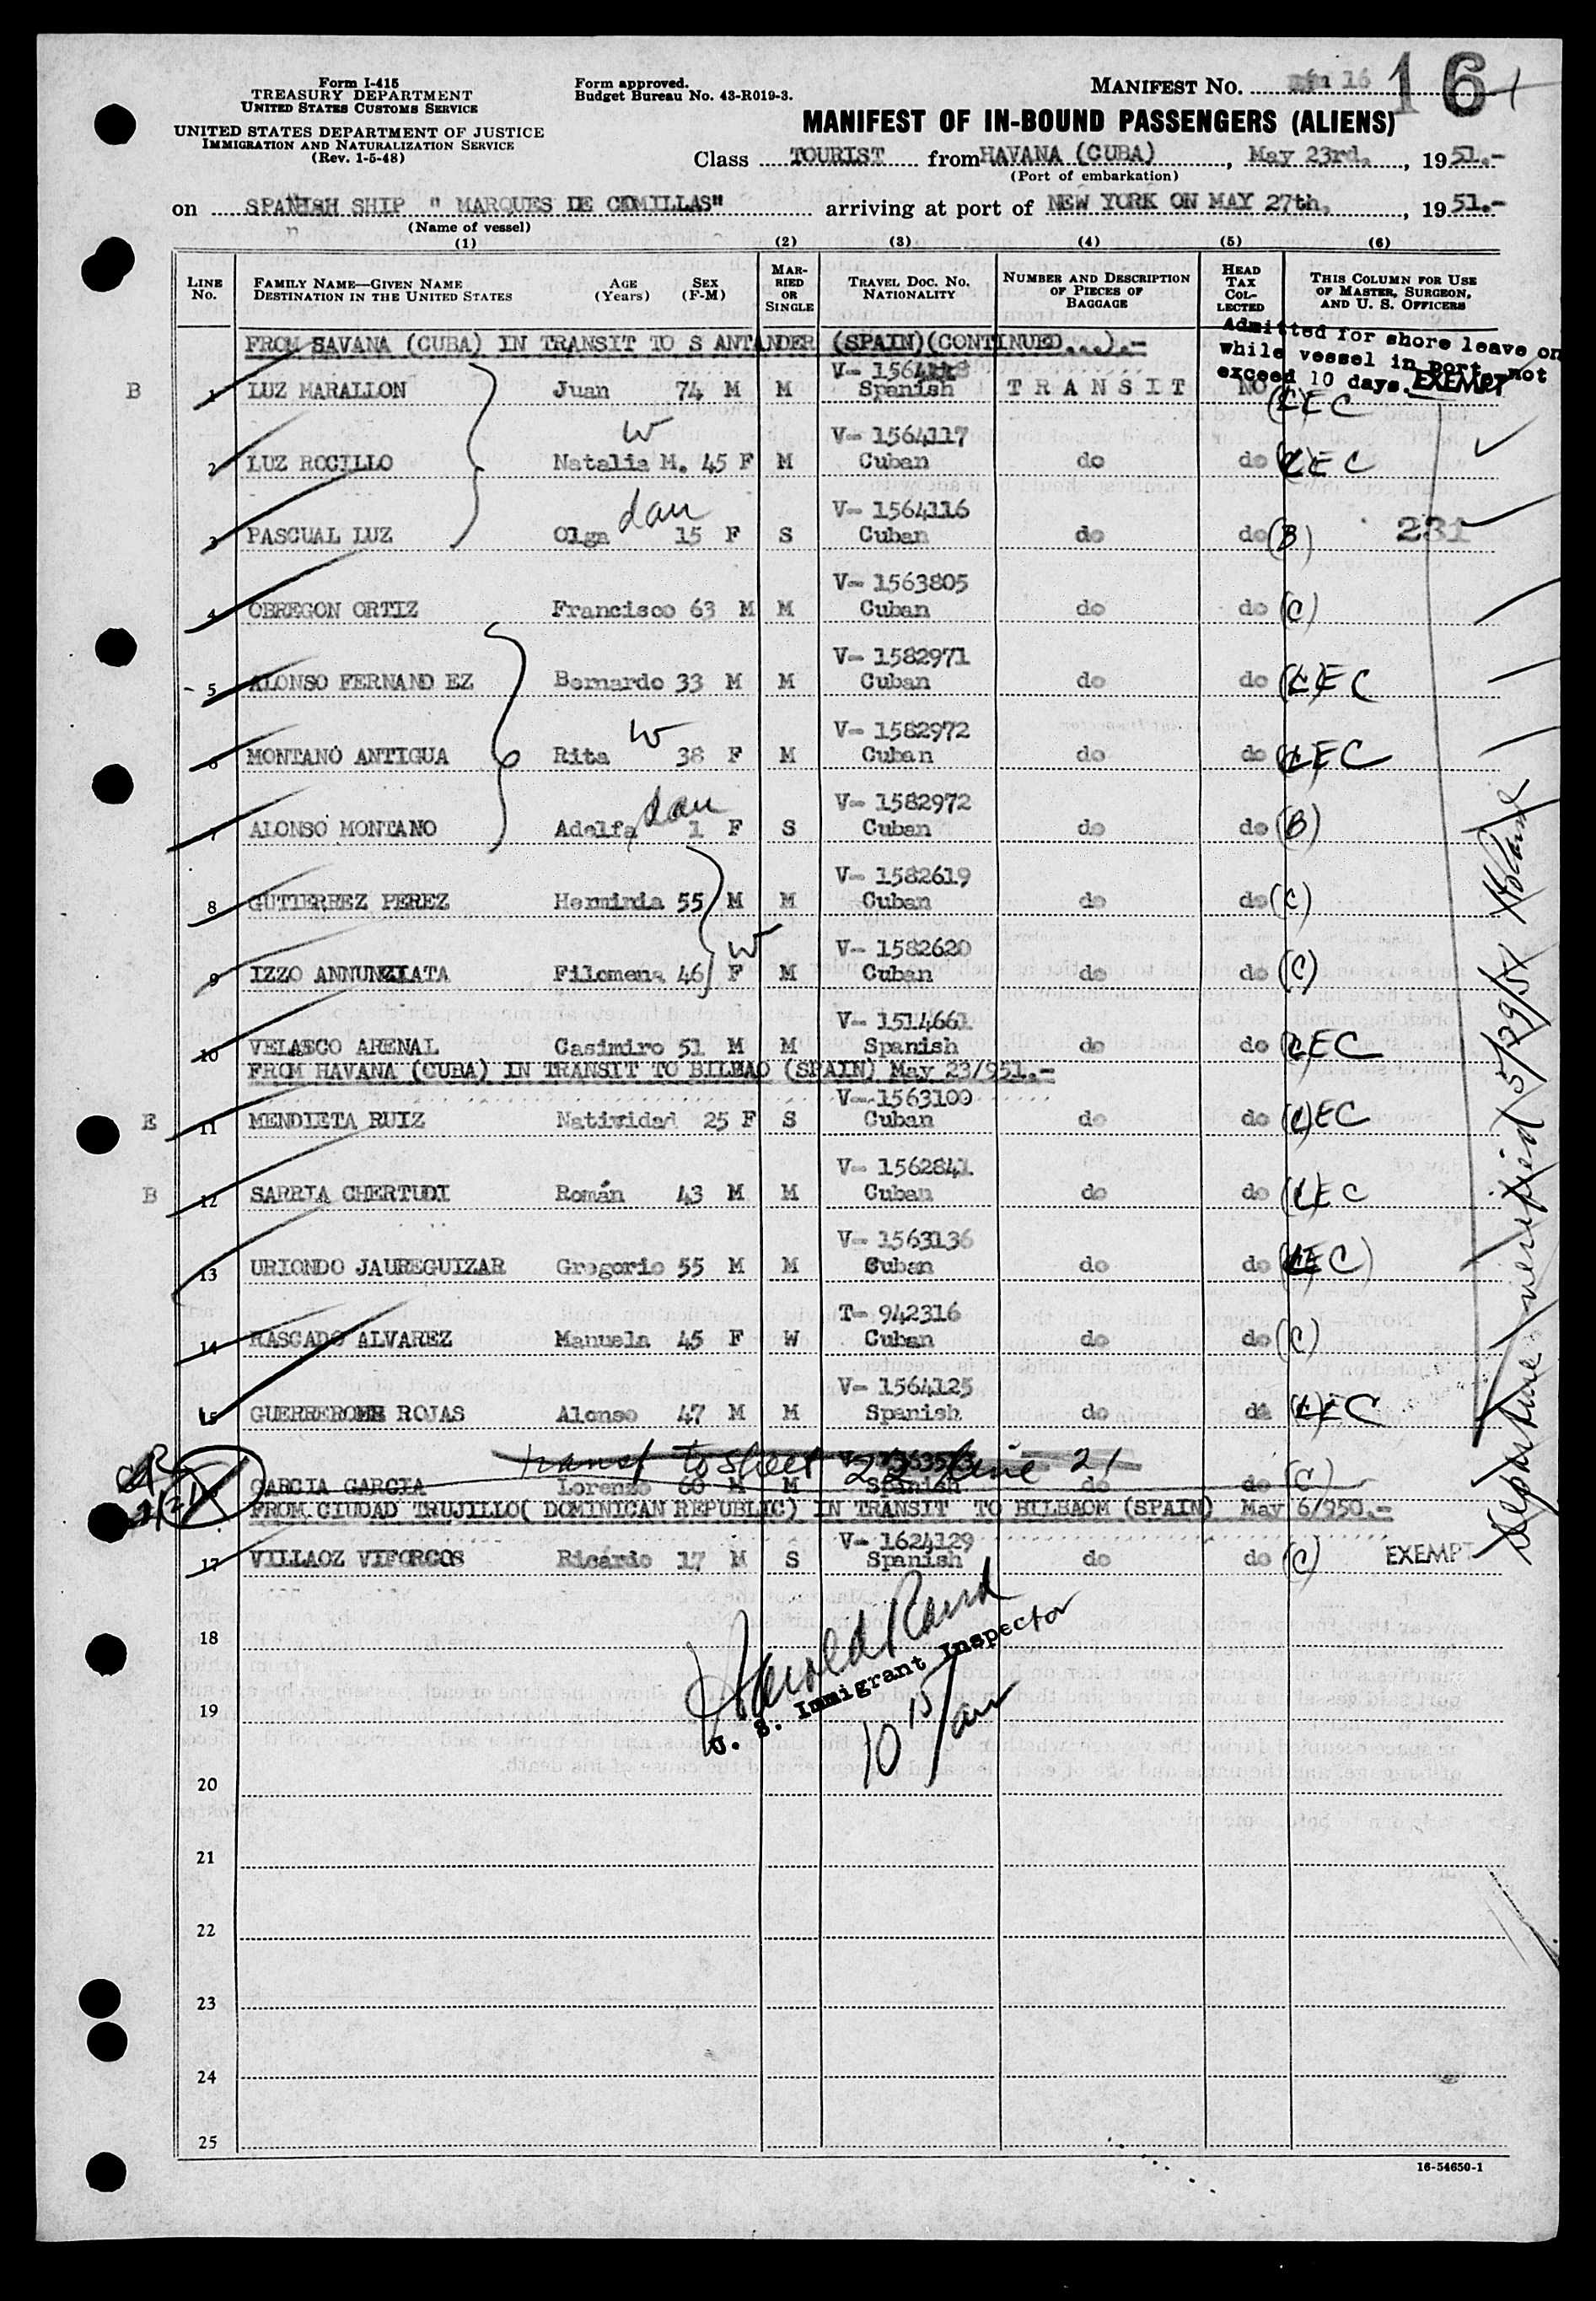 Form I-415
TREASURY DEPARTMENT
UNITED STATES CUSTOMS SERVICE
UNITED STATES DEPARTMENT OF JUSTICE
IMMIGRATION AND NATURALIZATION SERVICE
(Rev. 1-5-48)
Form approved.
Budget Bureau No. 43-R019-3.
MANIFEST NO. 16 16
MANIFEST OF IN-BOUND PASSENGERS (ALIENS)
Class TOURIST from HAVANA (CUBA), May 23rd., 1951.-
(Port of embarkation)
on SPANISH SHIP " MARQUES DE COMILLAS" arriving at port of NEW YORK ON MAY 27th., 1951.-
(Name of vessel)
(1) (2) (3) (4) (5) (6)
LINE No. FAMILY NAME—GIVEN NAME DESTINATION IN THE UNITED STATES AGE (Years) SEX (F-M) MARRIED OR SINGLE TRAVEL DOC. NO. NATIONALITY NUMBER AND DESCRIPTION OF PIECES OF BAGGAGE HEAD TAX COLLECTED THIS COLUMN FOR USE OF MASTER, SURGEON, AND U. S. OFFICERS
Admitted for shore leave on
while vessel in port, not
exceed 10 days. EXEMPT
FROM SAVANA (CUBA) IN TRANSIT TO S ANTANDER (SPAIN)(CONTINUED...).-
V- 1564118
B 1 LUZ MARALLON Juan 74 M M Spanish T R A N S I T NO (C)EC
W V- 1564117
2 LUZ ROCILLO Natalia M. 45 F M Cuban do do (C)EC
dau V- 1564116
3 PASCUAL LUZ Olga 15 F S Cuban do do (B) 231
V- 1563805
4 OBREGON ORTIZ Francisco 63 M M Cuban do do (C)
V- 1582971
5 ALONSO FERNAND EZ Bernardo 33 M M Cuban do do (C)EC
W V- 1582972
6 MONTANO ANTIGUA Rita 38 F M Cuban do do (C)EC
dau V- 1582972
7 ALONSO MONTANO Adelfa 1 F S Cuban do do (B)
V- 1582619
8 GUTIERREZ PEREZ Herminia 55 M M Cuban do do (C)
W V- 1582620
9 IZZO ANNUNZIATA Filomena 46 F M Cuban do do (C)
V- 1514661
10 VELASCO ARENAL Casimiro 51 M M Spanish do do (C)EC
FROM HAVANA (CUBA) IN TRANSIT TO BILBAO (SPAIN) May 23/951.-
V- 1563100
E 11 MENDIETA RUIZ Natividad 25 F S Cuban do do (C)EC
V- 1562841
B 12 SARRIA CHERTUDI Román 43 M M Cuban do do (C)EC
V- 1563136
13 URIONDO JAUREGUIZAR Gregorio 55 M M Cuban do do (C)EC
T- 942316
14 RASCADO ALVAREZ Manuela 45 F W Cuban do do (C)
V- 1564125
15 GUERREROME ROJAS Alonso 47 M M Spanish do do (C)EC
transf to sheet 22 line 21
GARCIA GARCIA Lorenzo 60 M M Spanish do do (C)
FROM CIUDAD TRUJILLO( DOMINICAN REPUBLIC) IN TRANSIT TO BILBAOM (SPAIN) May 6/950.-
V- 1624129
17 VILLAOZ VIFORCOS Ricardo 17 M S Spanish do do (C) EXEMPT
Departure verified 5/29/51
Harold Rand
U. S. Immigrant Inspector
10 15/am
18
19
20
21
22
23
24
25
16-54650-1